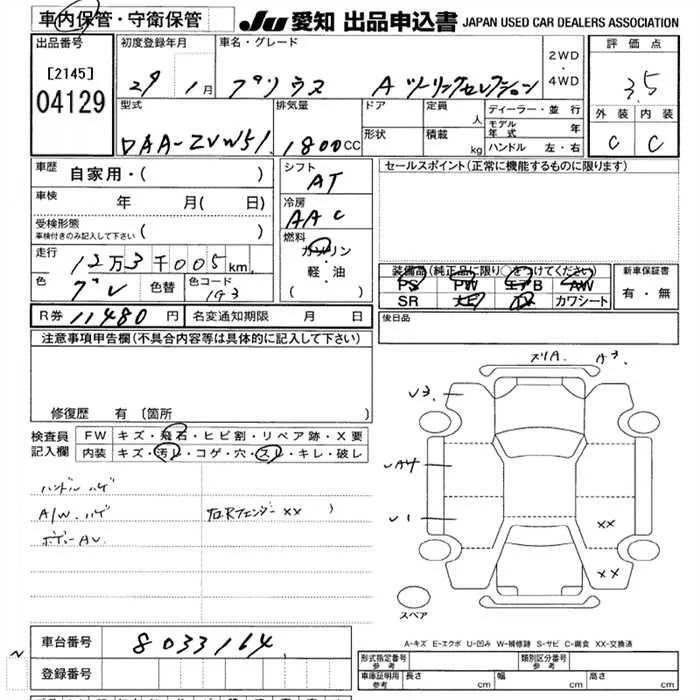 車内保管・守衛保管
JU 愛知 出品申込書 JAPAN USED CAR DEALERS ASSOCIATION
出品番号
[2145]
04129
初度登録年月
29年 1月
車名・グレード
プリウス Aツーリングセレクション
2WD
・
4WD
評価点
3.5
外装 内装
C C
型式
DAA-ZVW51
排気量
1800CC
ドア
形状
定員 人
積載 kg
ディーラー・並行
モデル年式 年
ハンドル 左・右
車歴
自家用・( )
車検
年 月( 日)
受検形態
車検付きのみ記入して下さい ( )
走行
12万3千005km
色
グレ
色替
色コード
1G3
シフト
AT
冷房
AAC
燃料
ガソリン
軽・油
( )
セールスポイント(正常に機能するものに限ります)
装備品(純正品に限り○をつけてください)
PS PW エアB AW
SR ナビ TV カワシート
新車保証書
有・無
R券 11480円
名変通知期限 月 日
後日品
注意事項申告欄(不具合内容等は具体的に記入して下さい)
修復歴 有 〔箇所 〕
検査員
記入欄
FW キズ・飛石・ヒビ割・リペア跡・X要
内装 キズ・汚レ・コゲ・穴・スレ・キレ・破レ
ハンドルハゲ
A/W ハゲ
右Rフェンダー XX
ボデーAU
メリA
A3
U3
UA4
U1
XX
XX
スペア
A-キズ E-エクボ U-凹み W-補修跡 S-サビ C-腐食 XX-交換済
車台番号
8033164
登録番号
形式指定番号
参考
類別区分番号
参考
車庫証明用
参考
長さ cm
幅 cm
高さ cm